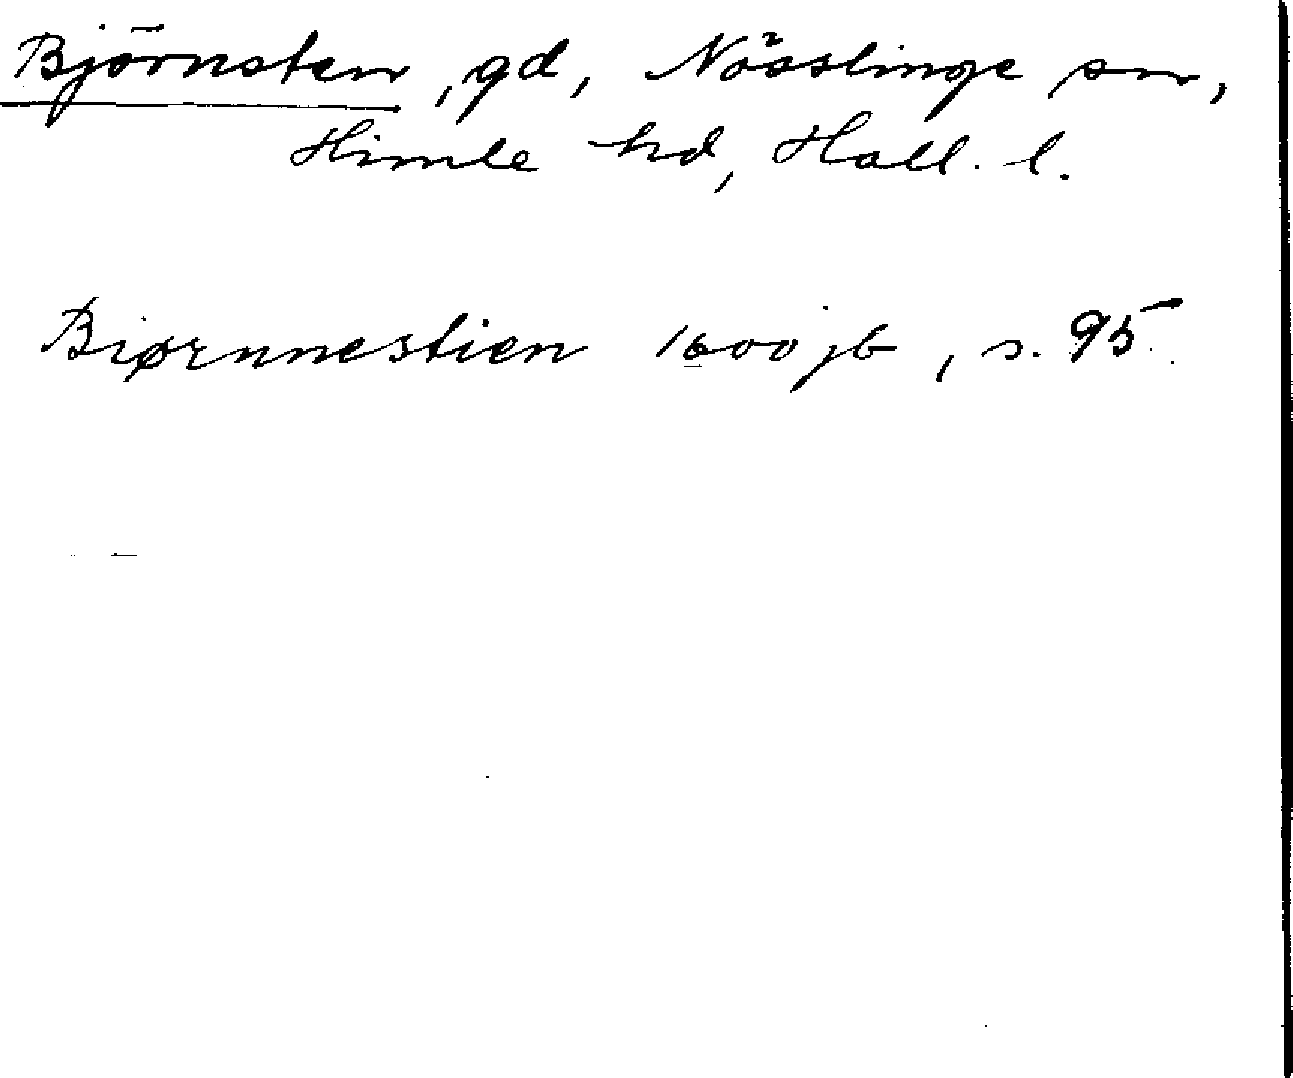 Björnsten, gd, Nösslinge sn,
Himle hd, Hall. l.
Biørnnestien 1600 jb, s. 95.